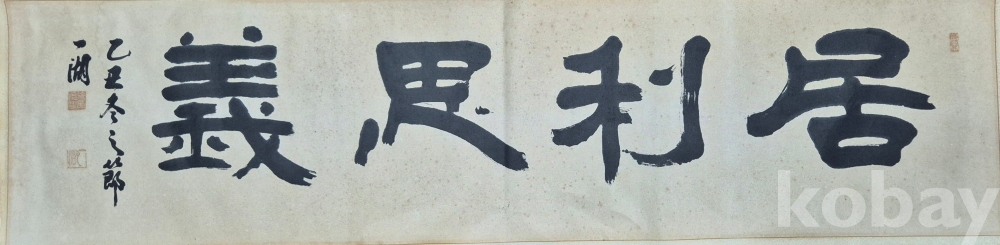 居利思義
乙丑冬之節
一彌
kobay